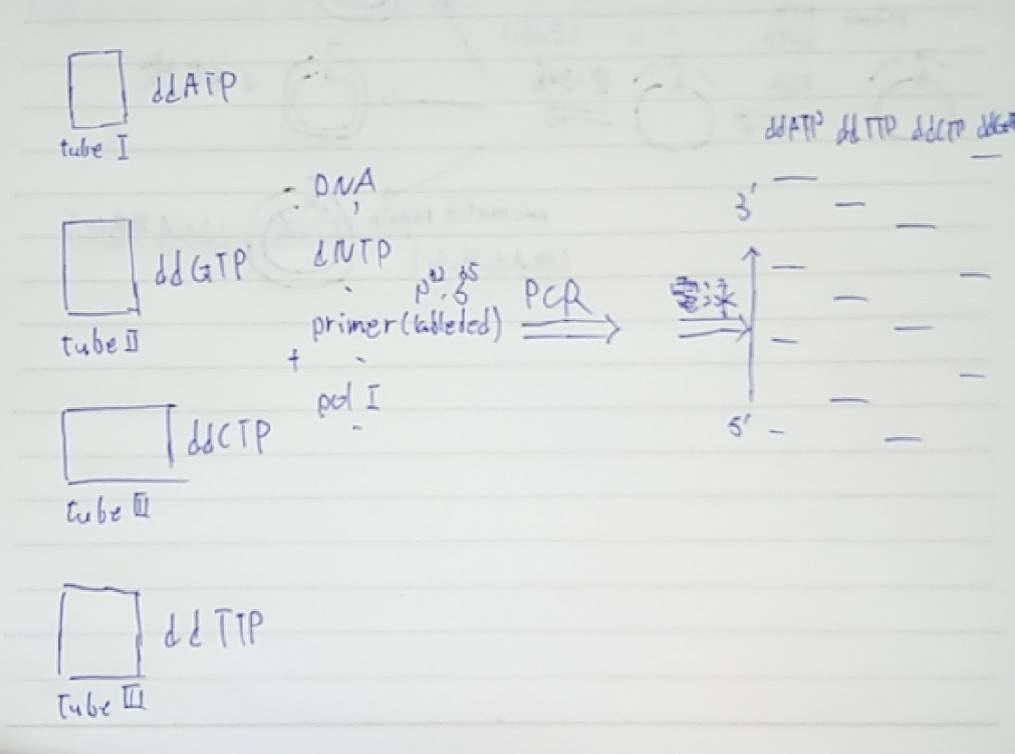 ddATP
tube I
ddGTP
tube II
ddCTP
tube III
ddTTP
tube III
DNA
,
dNTP
P³² . S³⁵
primer (lableled)
+
pol I
PCR
电泳
ddATP ddTTP ddCTP
3'
5'